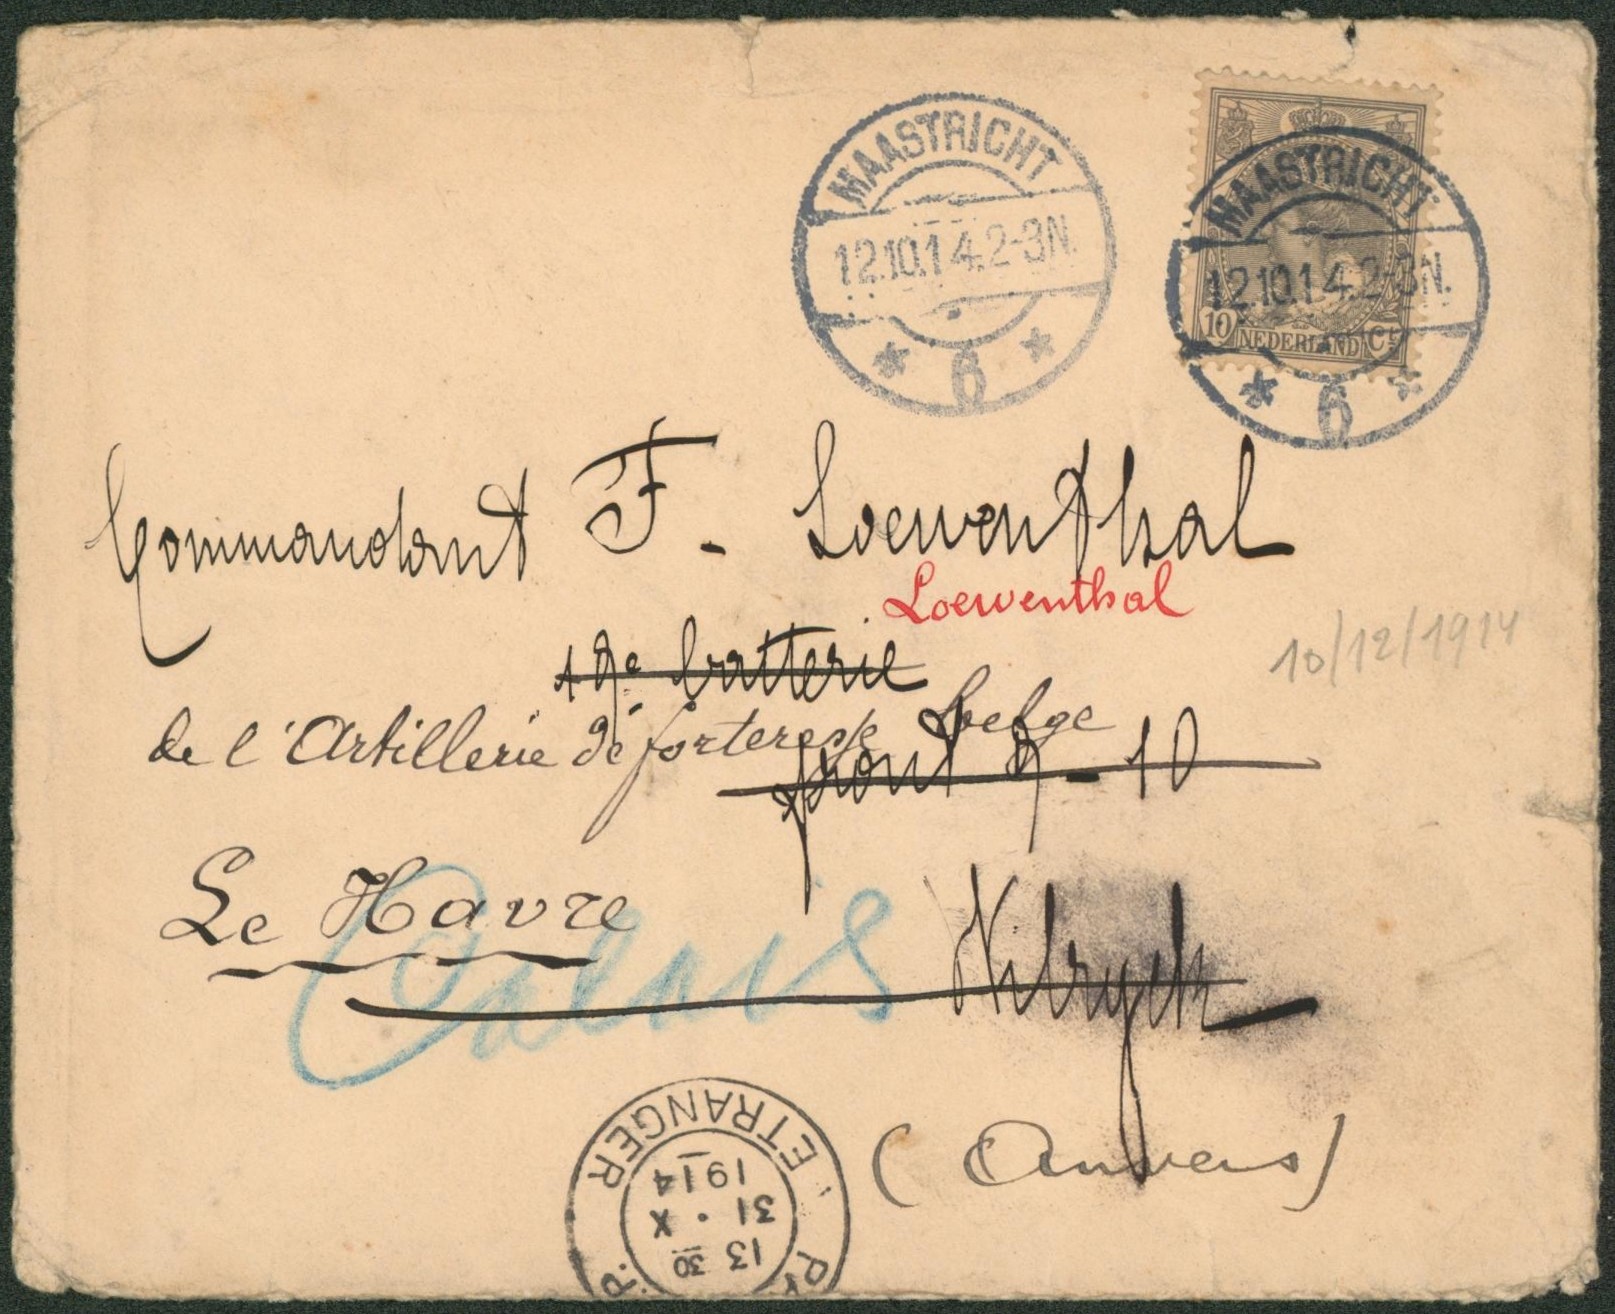 MAASTRICHT
12.10.14.2-3N.
* 6 *
MAASTRICHT
12.10.14.2-3N.
* 6 *
10 NEDERLAND Ct
Commandant F. Loewenthal
Loewenthal
10/12/1914
batterie
de l'Artillerie de forteresse belge
front 9-10
Le Havre
Calais
Wilryck
(Anvers)
ETRANGER
1914
31 · X
13 30